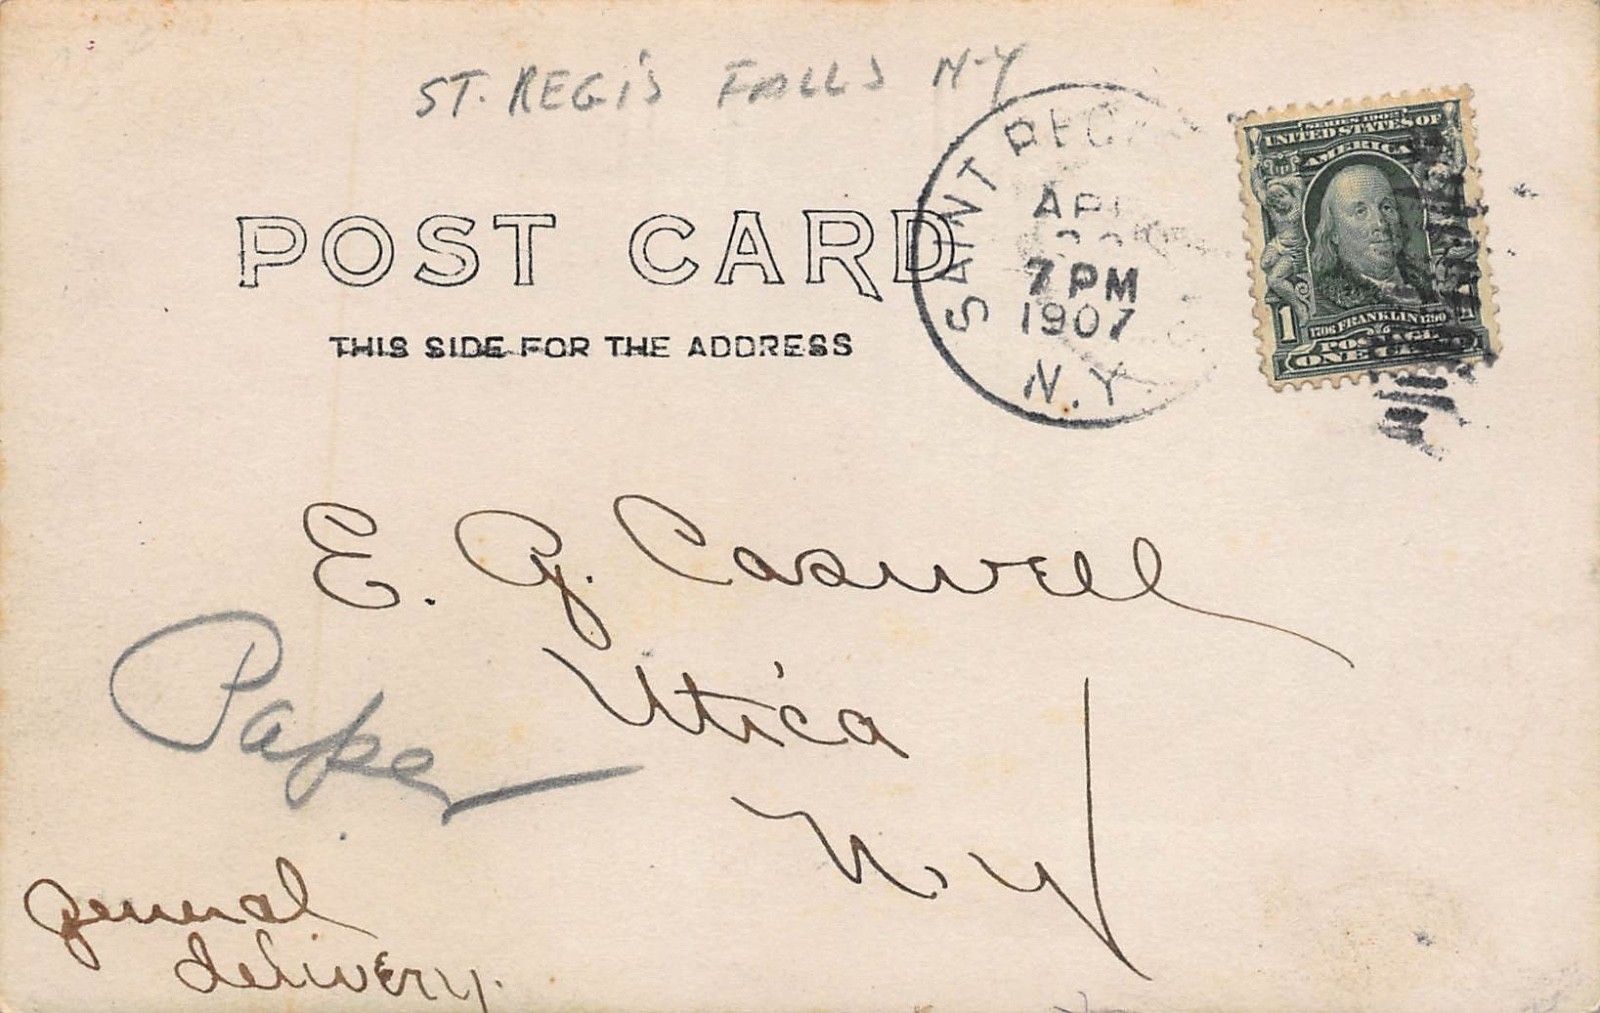 ST. REGIS FALLS N-Y
SAINT REGIS
7 PM
1907
N.Y.
SERIES 1902
UNITED STATES OF
AMERICA
1
1706 FRANKLIN 1790
POSTAGE
ONE
POST CARD
THIS SIDE FOR THE ADDRESS
E. G. Caswell
Utica
N.Y
Paper
General
delivery.